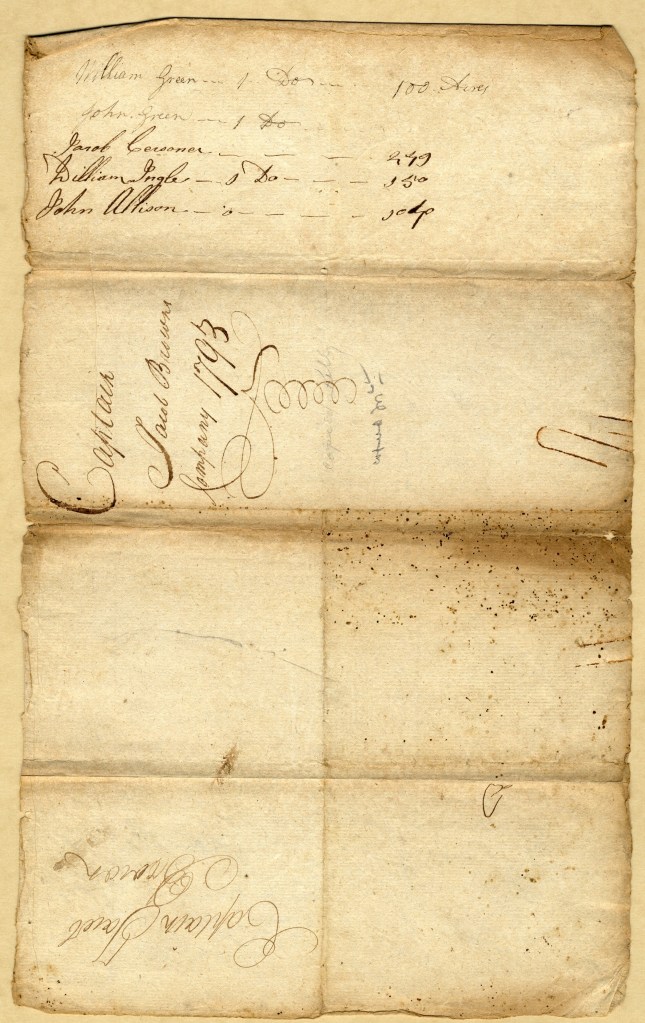 William Green -- 1 Do -- 100 Acres
John Green -- 1 Do
Jacob Cersoner - - - - 249
William Ingle - 1 Do - - - 150
John Allison - 0 - - - - 104
Captain
Jacob Browns
Company 1793
Captain Jacob
Brown